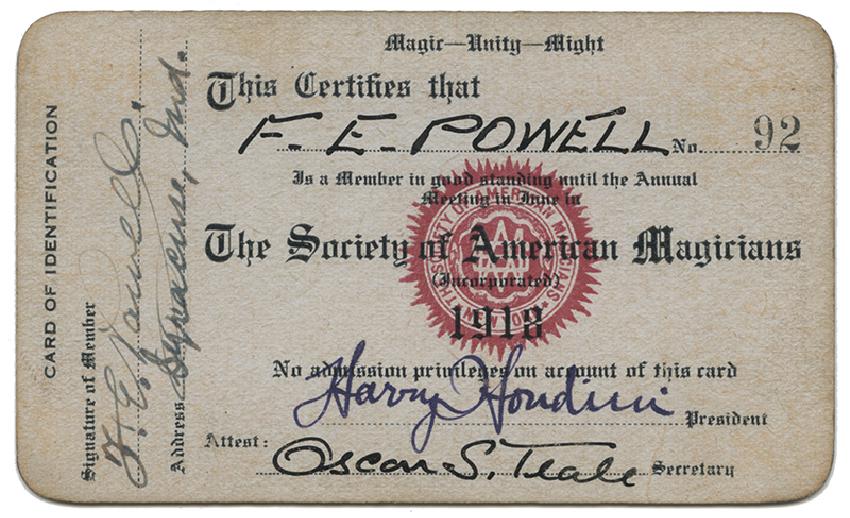 Magic—Unity—Might
This Certifies that
F. E. POWELL No. 92
Is a Member in good standing until the Annual
Meeting in June in
The Society of American Magicians
(Incorporated)
1918
No admission privileges on account of this card
Harry Houdini President
Attest: Oscar S. Teale Secretary
CARD OF IDENTIFICATION
Signature of Member F. E. Powell.
Address Syracuse, Ind.
SOCIETY OF AMERICAN MAGICIANS
NEW YORK